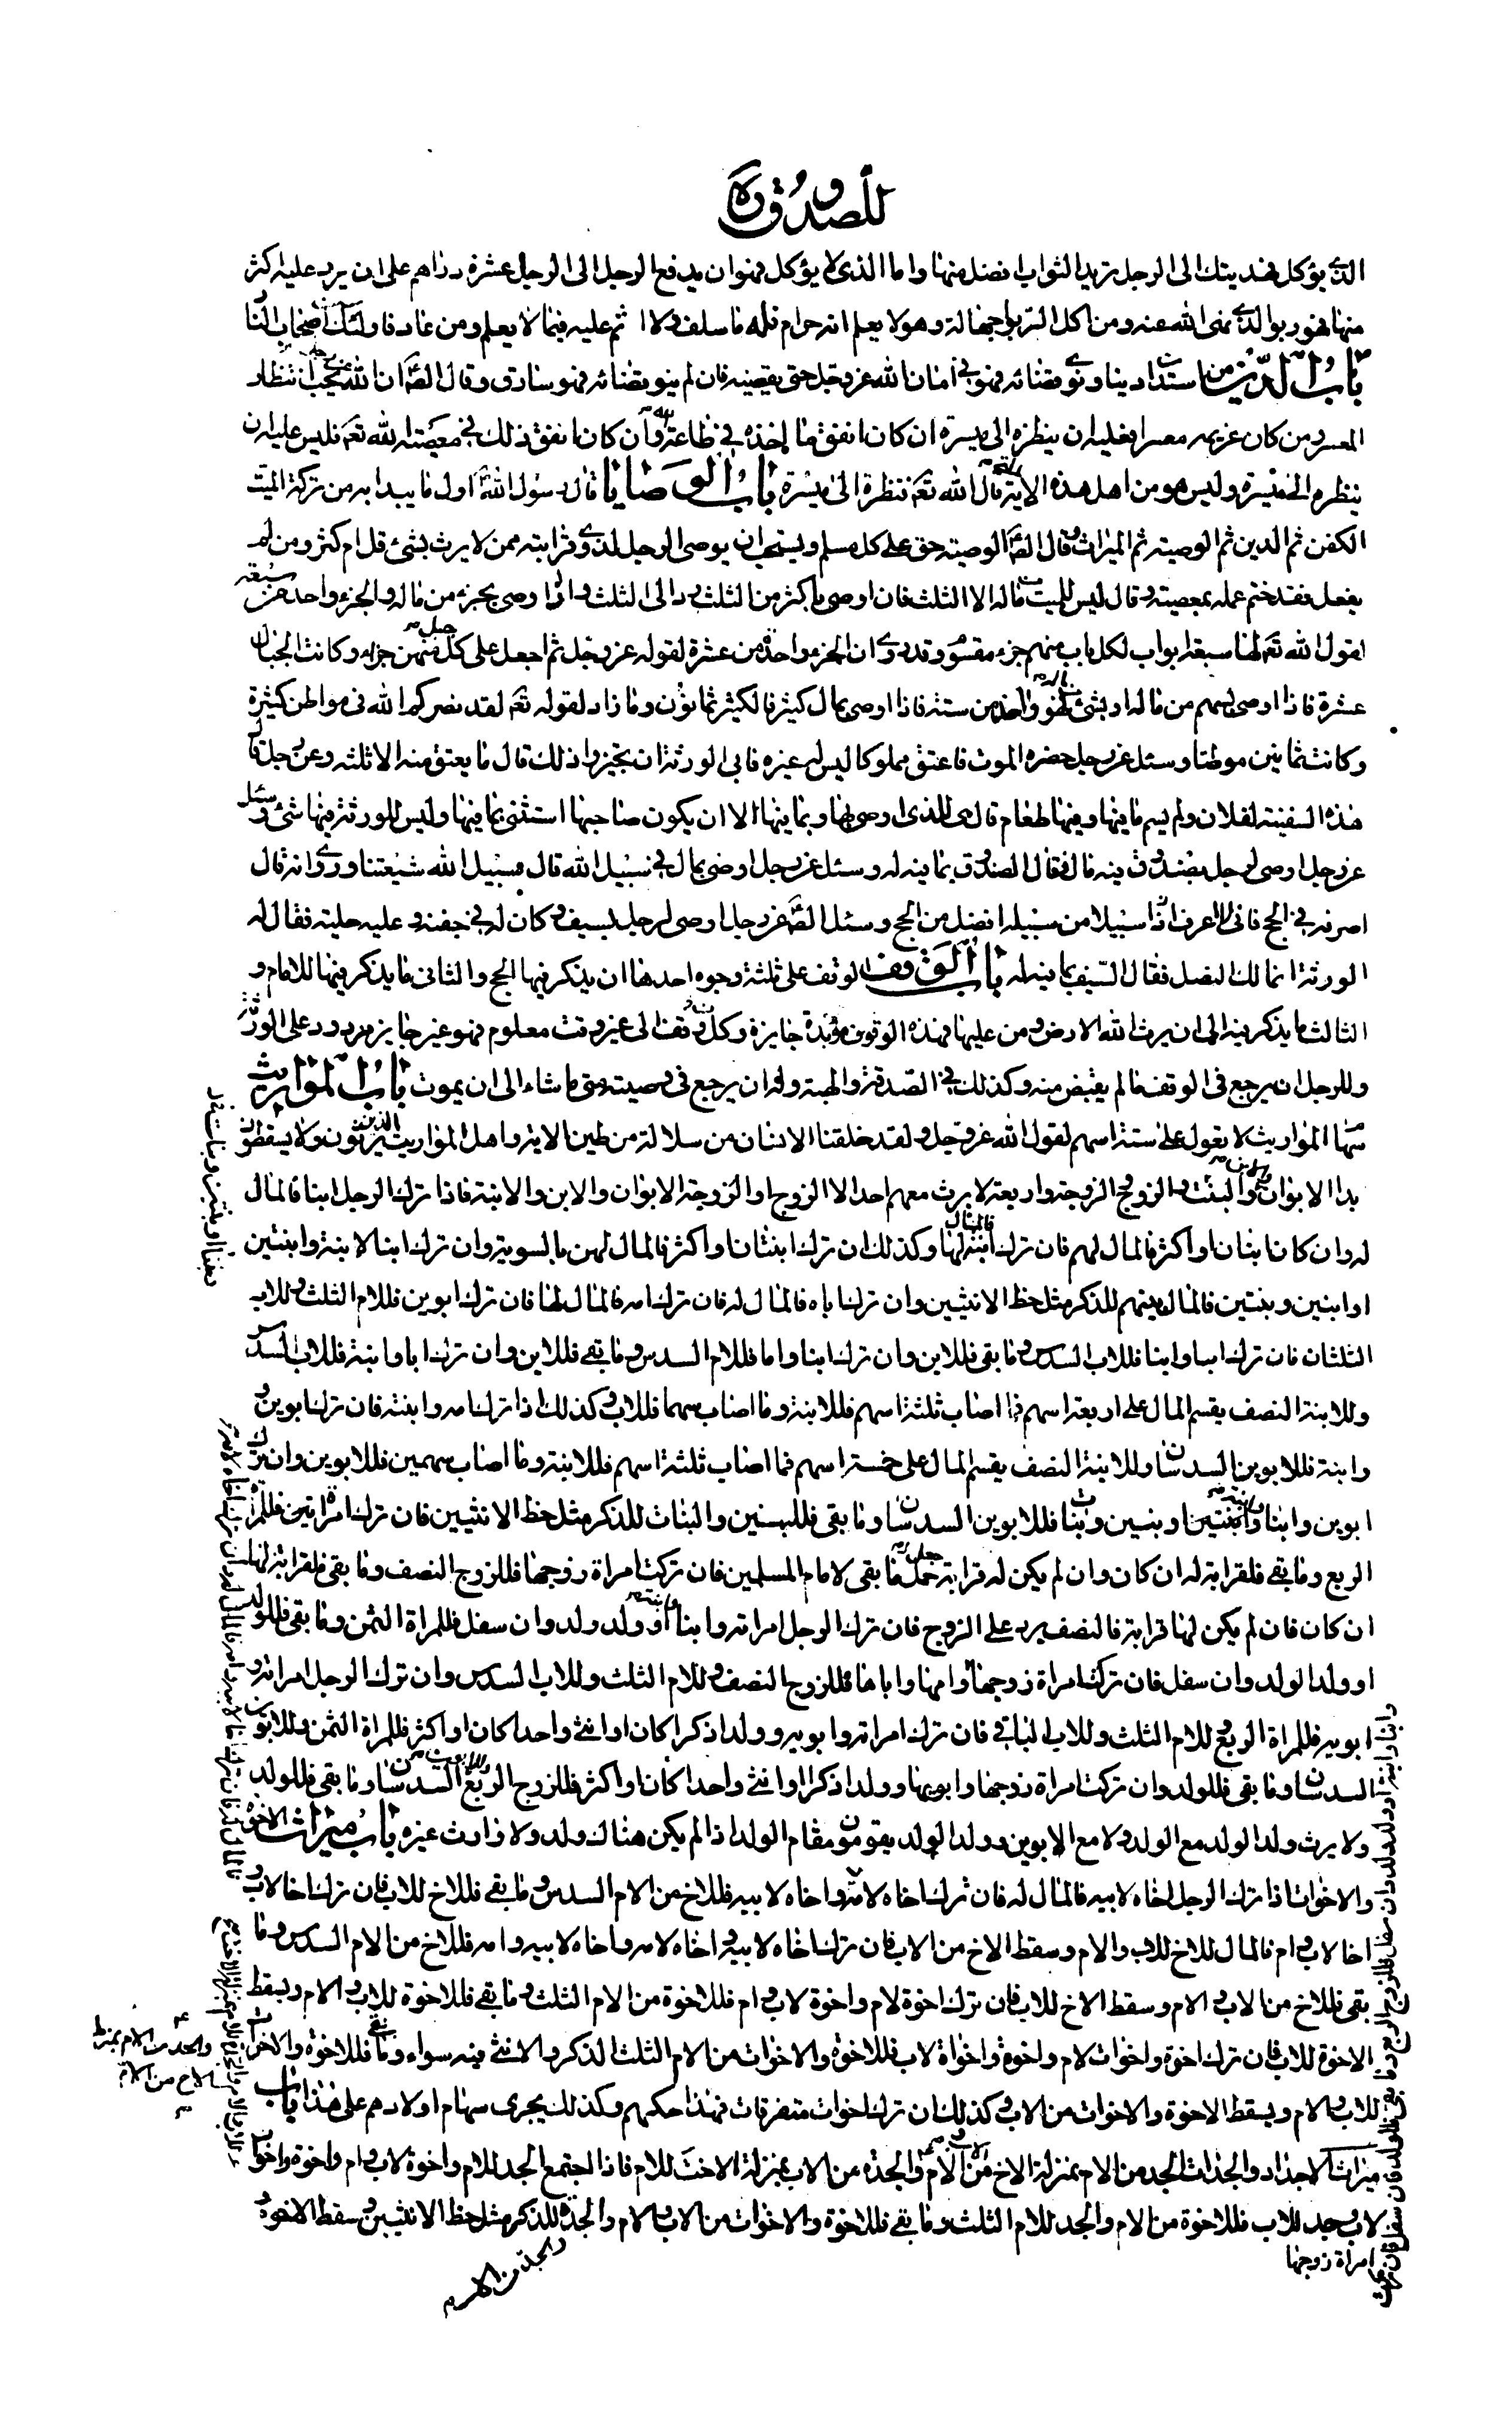 للصدوق ره
الذي يؤكل فهديتك الى الرجل تريد الثواب افضل منها واما الذى لا يؤكل فهو ان يدفع الرجل الى الرجل عشرة دراهم على ان يرد عليه اكثر
منها فهو ربوا الذى نهى الله عنه ومن اكل الربوا جهالة وهو لا يعلم انه حرام فله ما سلف ولا اثم عليه فيما لا يعلم ومن عاد فاولئك اصحاب النار
باب الدين من استدان دينا ونوى قضائه فهو في امان الله عز وجل حتى يقضيه فان لم ينو قضائه فهو سارق وقال الص ان الله يحب انتظار
المعسر ومن كان غريمه معسرا فعليه ان ينظره الى ميسرة ان كان انفق ما اخذه في طاعة الله وان كان انفق ذلك في معصية الله تعه فليس عليه ان
ينظره الى ميسرة وليس هو من اهل هذه الاية قال الله تعه فنظرة الى ميسرة باب الوصايا قال رسول الله اول ما يبدا به من تركة الميت
الكفن ثم الدين ثم الوصية ثم الميراث وقال الص الوصية حق على كل مسلم ويستحب ان يوصى الرجل لذوى قرابته ممن لا يرث بشئ قل ام كثر ومن لم
يفعل فقد ختم عمله بمعصية وقال ليس للميت من ماله الا الثلث فان اوصى باكثر من الثلث رد الى الثلث واذا اوصى بجزء من ماله والجزء واحد من سبعة
لقول الله تعه لها سبعة ابواب لكل باب منهم جزء مقسوم وقد روى ان الجزء واحد من عشرة لقوله عز وجل ثم اجعل على كل جبل منهن جزءا وكانت الجبال
عشرة فاذا اوصى بسهم من ماله او بشئ من ماله فهو واحد من ستة فاذا اوصى بمال كثير فالكثير ثمانون وما زاد لقوله تعه لقد نصركم الله فى مواطن كثيرة
وكانت ثمانين موطنا وسئل عن رجل حضره الموت فاعتق مملوكا ليس له غيره فابى الورثة ان يجيزوا ذلك قال ما يعتق منه الا ثلثه وعن رجل قال
هذه السفينة لفلان ولم يسم ما فيها وفيها طعام قال هى للذى اوصى بها وبما فيها الا ان يكون صاحبها استثنى بما فيها وليس للورثة فيها شئ وسئل
عن رجل اوصى لرجل بصندوق فيه مال فقال الصندوق بما فيه له وسئل عن رجل اوصى بمال في سبيل الله قال سبيل الله شيعتنا وروى انه قال
اصرفه في الحج فانى لا اعرف سبيلا من سبيله افضل من الحج وسئل الص عن رجل اوصى لرجل بسيف وكان له في جفن وعليه حلية فقال له
الورثة انما لك النصل فقال السيف بما فيه له باب الوقف الوقف على ثلثة وجوه احدها ان يذكر فيها الحج والثانى ما يذكر فيها للامام و
الثالث ما يذكر فيه الى ان يرث الله الارض ومن عليها فهذه الوقوف مؤبدة جايزة وكل وقف الى غير وقت معلوم فهو غير جايز مردود على الورثة
وللرجل ان يرجع فى الوقف ما لم يقبض منه وكذلك في الصدقة والهبة وله ان يرجع فى وصيته متى ما شاء الى ان يموت باب المواريث
سهام المواريث لا يعول على ستة اسهم لقول الله عز وجل ولقد خلقنا الانسان من سلالة من طين الاية واهل المواريث الذين يرثون ولا يسقطون
بدا الابوان والابن والبنت والزوج والزوجة واربعة لا يرث معهم احد الا الزوج او الزوجة الابوان والابن والابنة فاذا ترك الرجل ابنا فالمال
له وان كانا ابنان او اكثر فالمال لهم فان ترك ابنة فالمال لها وكذلك ان ترك ابنتان او اكثر فالمال لهن بالسوية وان ترك ابنا او ابنة وابنتين
او ابنين وبنتين فالمال بينهم للذكر مثل حظ الانثيين وان ترك اباه فالمال له فان ترك امه فالمال لها فان ترك ابوين فللام الثلث وللاب
الثلثان فان ترك ابا وابنا فللاب السدس وما بقى فللابن وان ترك ابنا واما فللام السدس وما بقى فللابن وان ترك ابا وابنة فللاب السدس
وللابنة النصف يقسم المال على اربعة اسهم فما اصاب ثلثة اسهم فللابنة وما اصاب سهما فللاب وكذلك اذا ترك امه وابنته فان ترك ابوين و
وابنة فللابوين السدسان وللابنة النصف يقسم المال على خمسة اسهم فما اصاب ثلثة اسهم فللابنة وما اصاب سهمين فللابوين وان ترك
ابوين وابنا وابنة وابنتين او بنين وبنات فللابوين السدسان وما بقى فللبنين والبنات للذكر مثل حظ الانثيين فان ترك امراته فللمراة
الربع وما بقى فلقرابة له ان كان وان لم يكن له قرابة جعل ما بقى لامام المسلمين فان تركت امراة زوجها فللزوج النصف وما بقى فلقرابة لها
ان كان فان لم يكن لها قرابة فالنصف يرد على الزوج فان ترك الرجل امراته وابنا وابنته او ولد ولد وان سفل فللمراة الثمن وما بقى فللولد
او ولد الولد وان سفل فان تركت امراة زوجها وامها واباها فللزوج النصف وللام الثلث وللاب السدس وان ترك الرجل امراته و
ابويه فللمراة الربع للام الثلث وللاب الباقى فان ترك امراته وابويه وولدا ذكرا كان او انثى واحدا كان او اكثر فللمراة الثمن وللابوين
السدسان وما بقى فللولد وان تركت امراة زوجها وابويها وولدا ذكرا او انثى واحدا كان او اكثر فللزوج الربع وللابوين السدسان وما بقى فللولد
ولا يرث ولد الولد مع الولد ولا مع الابوين وولد الولد يقومون مقام الولد اذا لم يكن هناك ولد ولا وارث غيره باب ميراث الاخوة
والاخوات اذا ترك الرجل اخاه لابيه فالمال له فان ترك اخاه لامه واخاه لابيه فللاخ من الام السدس وما بقى فللاخ للاب فان ترك اخا لاب و
اخا لاب وام فالمال للاخ للاب والام وسقط الاخ من الاب فان ترك اخاه لابيه واخاه لامه واخاه لابيه وامه فللاخ من الام السدس وما
بقى فللاخ من الاب والام وسقط الاخ للاب فان ترك اخوة لام واخوة لاب وام فللاخوة من الام الثلث وما بقى فللاخوة للاب والام ويسقط
الاخوة للاب فان ترك اخوة واخوات لام واخوة واخوات لاب فللاخوة والاخوات من الام الثلث الذكر والانثى فيه سواء وما بقى فللاخوة والاخوات
للاب والام ويسقط الاخوة والاخوات من الاب وكذلك ان ترك اخوات متفرقات فهذا حكمهم وكذلك يجرى سهام اولادهم على هذا باب
ميراث الاجداد والجدات الجد من الام بمنزلة الاخ من الام والجدة من الاب بمنزلة الاخت للام فاذا اجتمع الجد للام واخوة لاب وام واخوة واخوات
لاب وجد للاب فللاخوة من الام والجد للام الثلث وما بقى فللاخوة والاخوات من الاب والام والجد للذكر مثل حظ الانثيين وسقط الاخوة
والجد من الام بمنزلة
الاخ من الام
امراة زوجها